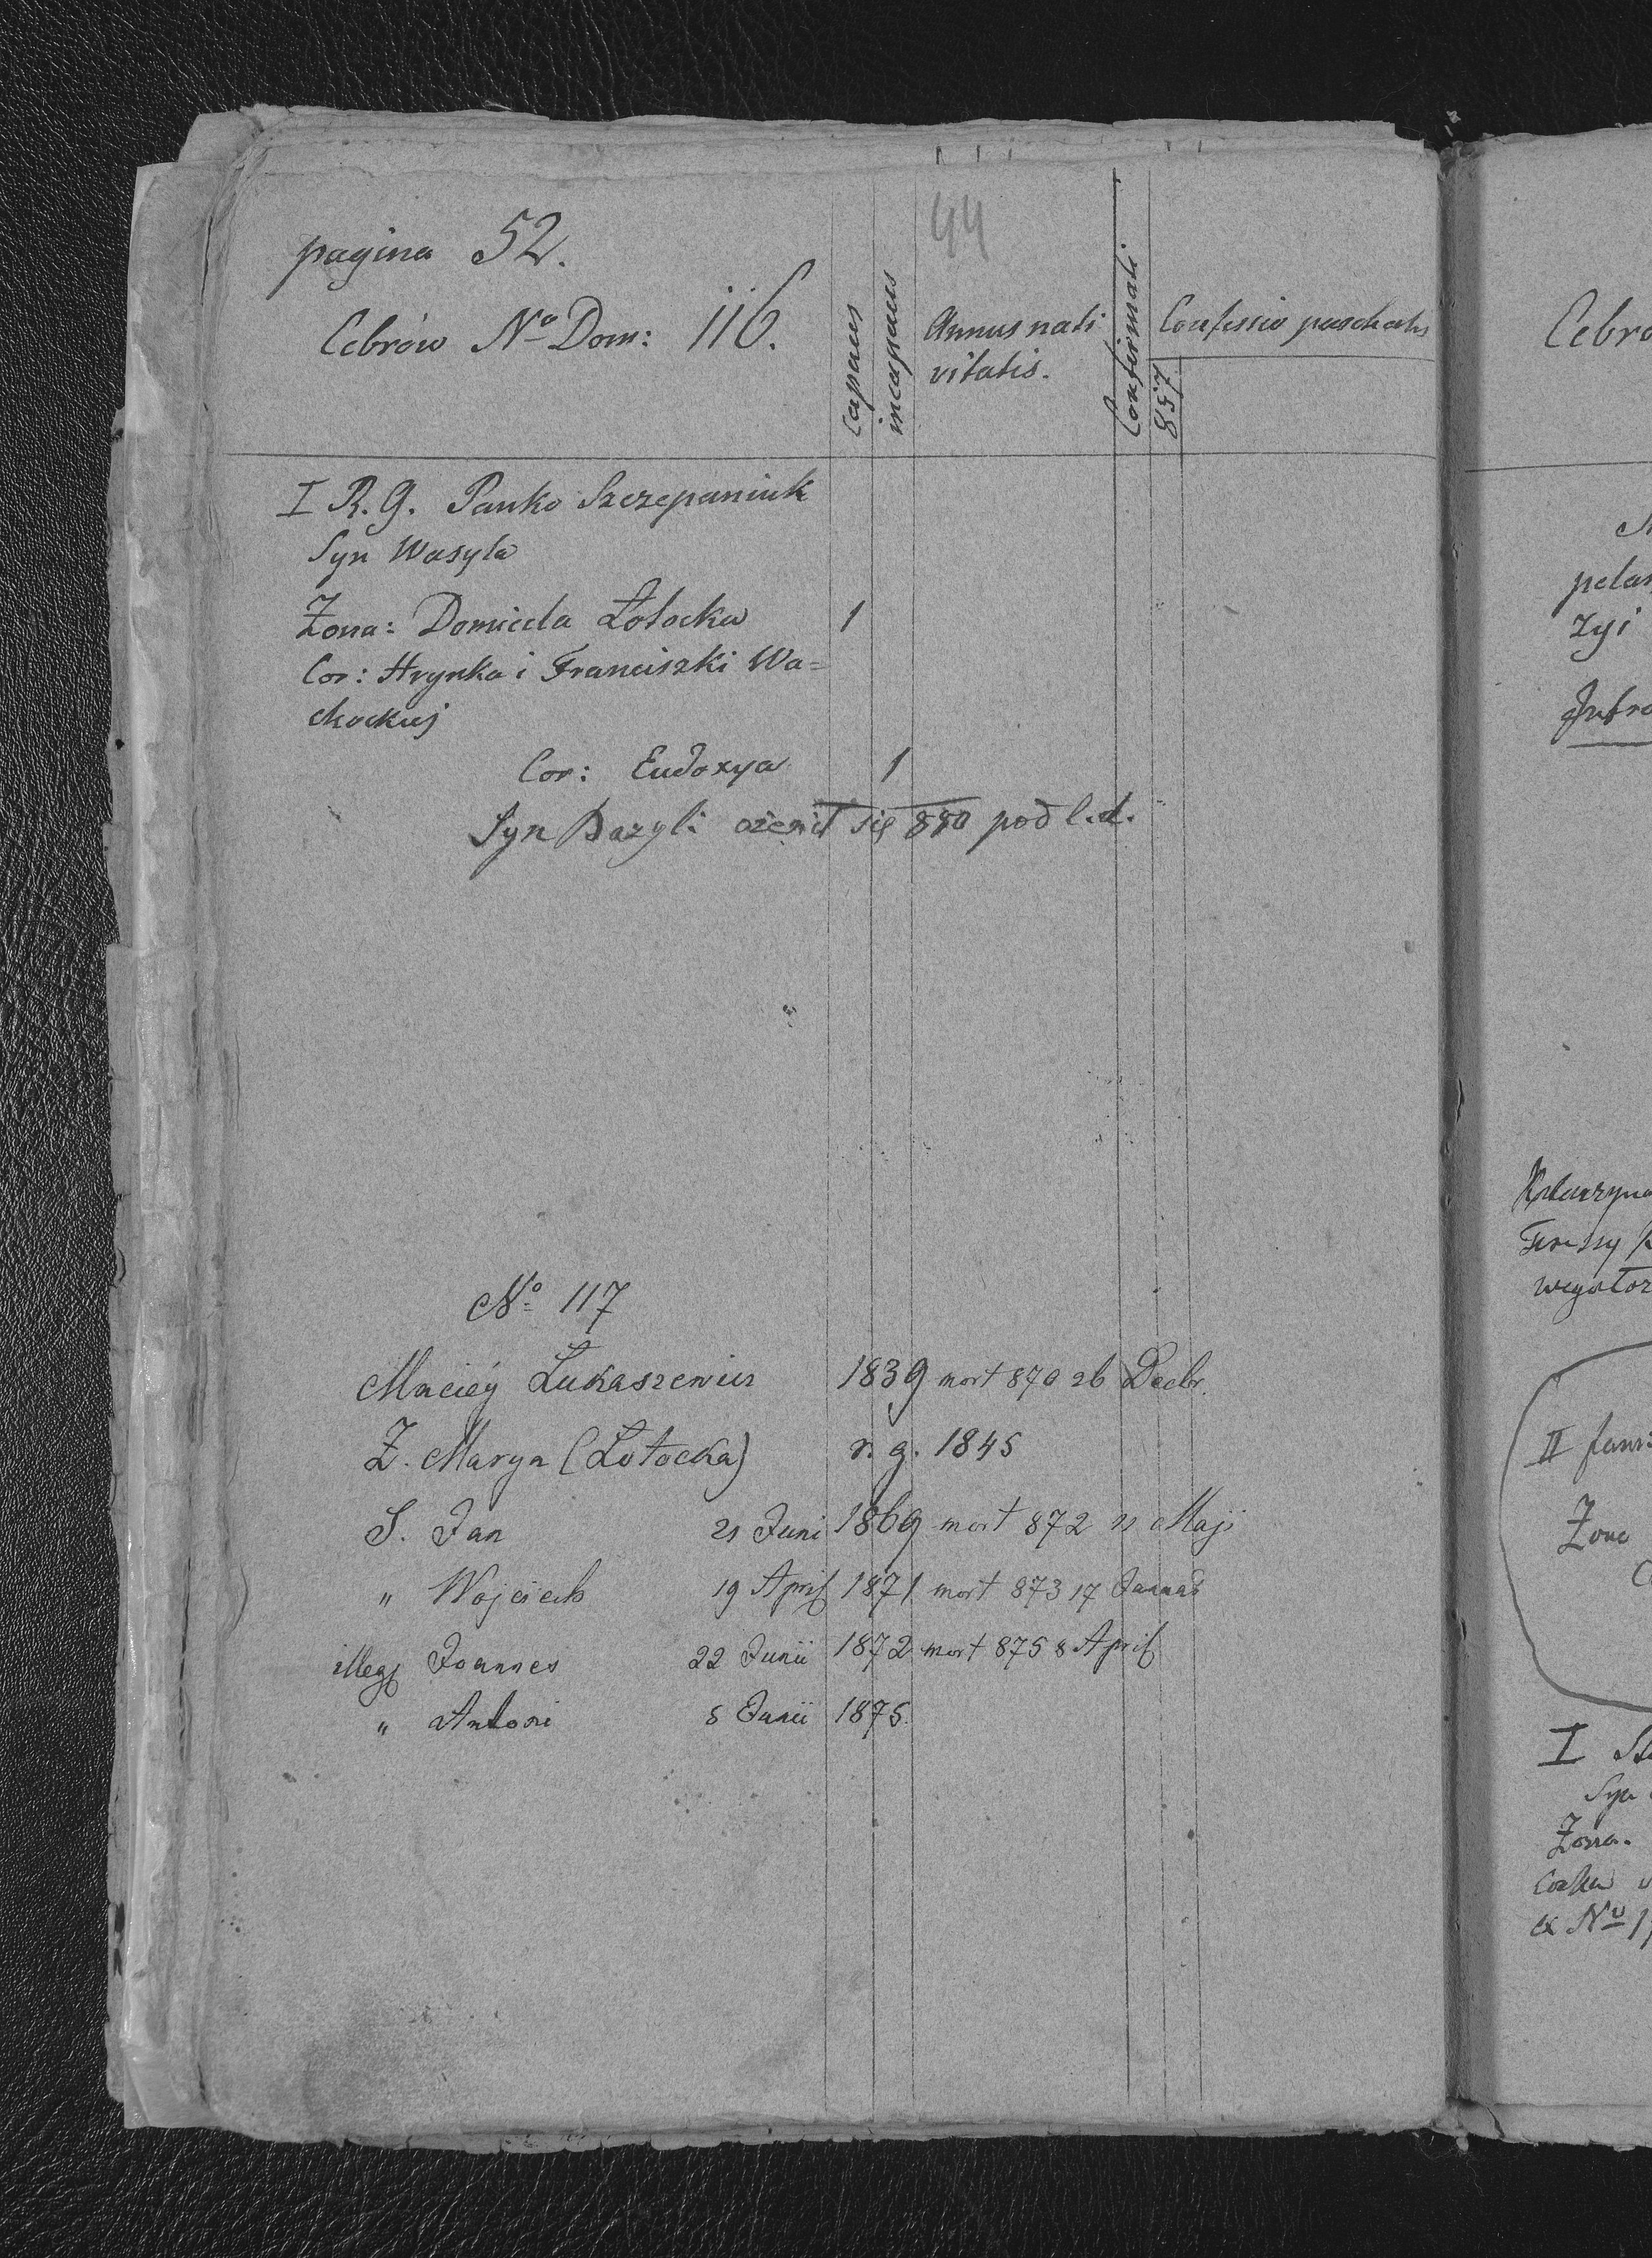 44
pagina 52.
Cebrów No Dom: 116.
capaces
incapaces
Annus nati
vitatis.
Confirmati
Confessio paschalis
857
I R. G. Panko Szczepaniuk
Syn Wasyla
Żona: Domicela Łotocka 1
Cor: Hrynka i Franciszki Wa=
chockiej
Cor: Eudoxya 1
Syn Bazyli ożenił się 880 pod l.d.
No 117
Maciej Łukaszewicz 1839 mort 870 26 Decbr.
Ż. Marya (Łotocka) r. g. 1845
S. Jan 21 Juni 1869 mort 872 11 Maji
" Wojciech 19 April 1871 mort 873 17 Januar
illeg Joannes 22 Junii 1872 mort 875 8 April
" Antoni 5 Junii 1875.
Cebró
pela
żyi
Katarzyna
Teressy
II fami
Żona
I
Syn
Żona.
Córka
ex No